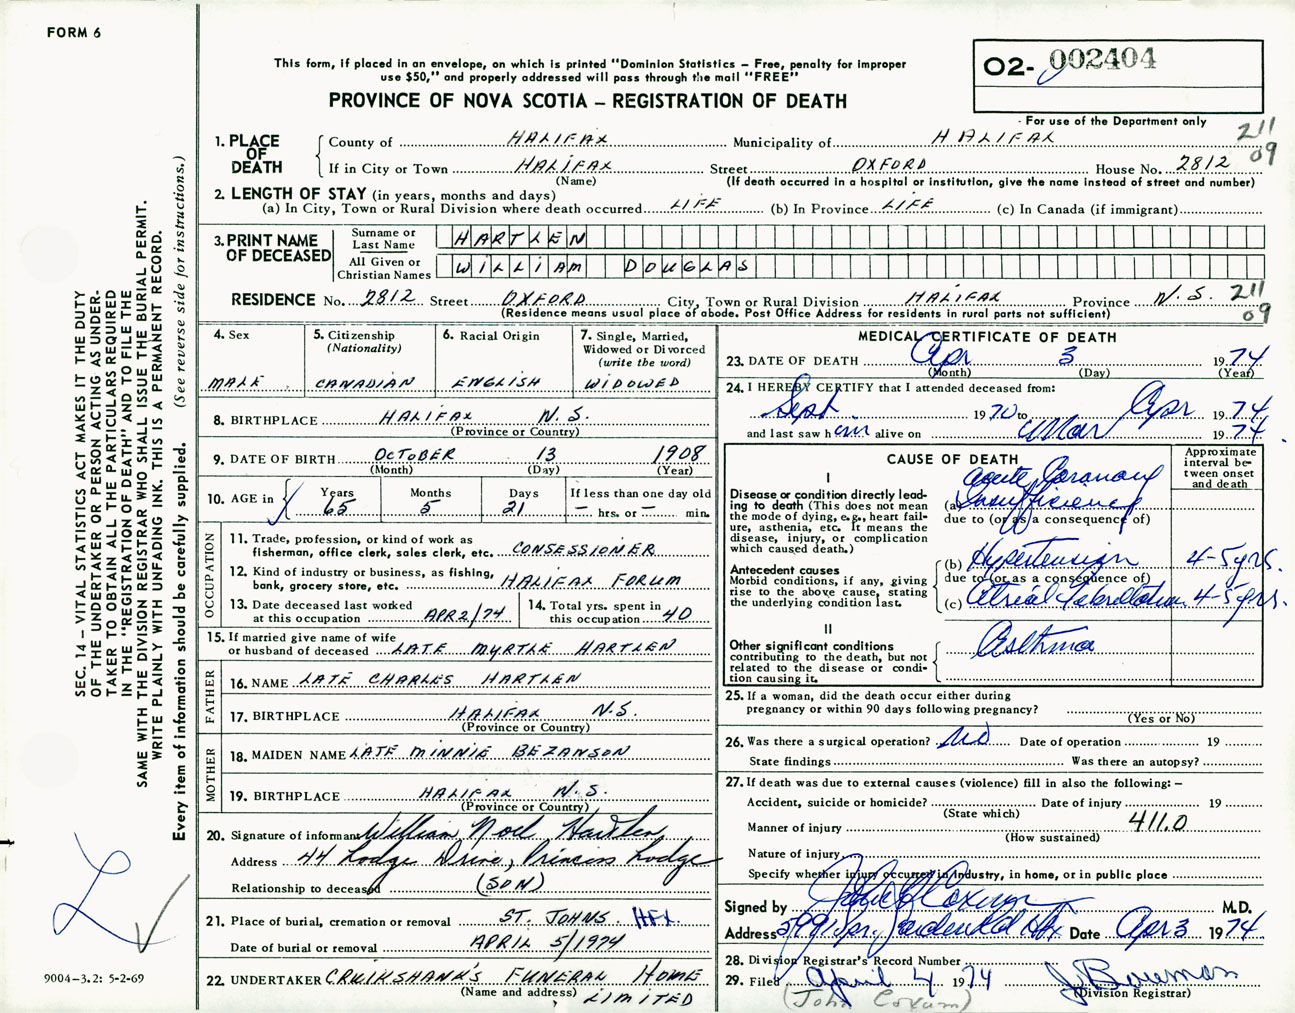 FORM 6
This form, if placed in an envelope, on which is printed "Dominion Statistics – Free, penalty for improper
use $50," and properly addressed will pass through the mail "FREE"
PROVINCE OF NOVA SCOTIA – REGISTRATION OF DEATH
O2- 002404
For use of the Department only
211
09
SEC. 14 – VITAL STATISTICS ACT MAKES IT THE DUTY
OF THE UNDERTAKER OR PERSON ACTING AS UNDER-
TAKER TO OBTAIN ALL THE PARTICULARS REQUIRED
IN THE "REGISTRATION OF DEATH" AND TO FILE THE
SAME WITH THE DIVISION REGISTRAR WHO SHALL ISSUE THE BURIAL PERMIT.
WRITE PLAINLY WITH UNFADING INK. THIS IS A PERMANENT RECORD.
Every item of information should be carefully supplied. (See reverse side for instructions.)
1. PLACE OF DEATH
County of HALIFAX Municipality of HALIFAX
If in City or Town HALIFAX Street OXFORD House No. 2812
(Name) (If death occurred in a hospital or institution, give the name instead of street and number)
2. LENGTH OF STAY (in years, months and days)
(a) In City, Town or Rural Division where death occurred LIFE (b) In Province LIFE (c) In Canada (if immigrant)
3. PRINT NAME OF DECEASED
Surname or Last Name HARTLEN
All Given or Christian Names WILLIAM DOUGLAS
RESIDENCE No. 2812 Street OXFORD City, Town or Rural Division HALIFAX Province N.S. 211
09
(Residence means usual place of abode. Post Office Address for residents in rural parts not sufficient)
4. Sex
MALE
5. Citizenship
(Nationality)
CANADIAN
6. Racial Origin
ENGLISH
7. Single, Married,
Widowed or Divorced
(write the word)
WIDOWED
8. BIRTHPLACE HALIFAX N.S.
(Province or Country)
9. DATE OF BIRTH OCTOBER 13 1908
(Month) (Day) (Year)
10. AGE in Years Months Days If less than one day old
65 5 21 – hrs. or – min.
OCCUPATION
11. Trade, profession, or kind of work as
fisherman, office clerk, sales clerk, etc. CONSESSIONER
12. Kind of industry or business, as fishing,
bank, grocery store, etc. HALIFAX FORUM
13. Date deceased last worked
at this occupation APR 2/74
14. Total yrs. spent in
this occupation 40
15. If married give name of wife
or husband of deceased LATE MYRTLE HARTLEN
FATHER
16. NAME LATE CHARLES HARTLEN
17. BIRTHPLACE HALIFAX N.S.
(Province or Country)
MOTHER
18. MAIDEN NAME LATE MINNIE BEZANSON
19. BIRTHPLACE HALIFAX N.S.
(Province or Country)
20. Signature of informant William Noel Hartlen
Address 44 Lodge Drive, Princess Lodge
Relationship to deceased (SON)
21. Place of burial, cremation or removal ST. JOHNS. HFX.
Date of burial or removal APRIL 5/1974
22. UNDERTAKER CRUIKSHANK'S FUNERAL HOME
(Name and address) LIMITED
9004–3.2: 5-2-69
MEDICAL CERTIFICATE OF DEATH
23. DATE OF DEATH Apr 3 1974
(Month) (Day) (Year)
24. I HEREBY CERTIFY that I attended deceased from:
Sept. 1970 to Apr 1974
and last saw him alive on Mar 1974.
CAUSE OF DEATH
Approximate
interval be-
tween onset
and death
I
Disease or condition directly lead-
ing to death (This does not mean
the mode of dying, e.g., heart fail-
ure, asthenia, etc. It means the
disease, injury, or complication
which caused death.)
Acute Coronary
(a) Insufficiency
due to (or as a consequence of)
Antecedent causes
Morbid conditions, if any, giving
rise to the above cause, stating
the underlying condition last.
(b) Hypertension 4-5 yrs.
due to (or as a consequence of)
(c) Atrial Fibrillation 4-5 yrs.
II
Other significant conditions
contributing to the death, but not
related to the disease or condi-
tion causing it.
Asthma
25. If a woman, did the death occur either during
pregnancy or within 90 days following pregnancy?
(Yes or No)
26. Was there a surgical operation? No Date of operation 19
State findings Was there an autopsy?
27. If death was due to external causes (violence) fill in also the following: –
Accident, suicide or homicide? Date of injury 19
(State which)
Manner of injury 411.0
(How sustained)
Nature of injury
Specify whether injury occurred in industry, in home, or in public place
Signed by M.D.
Address 5991 Spr. Garden Rd Hfx Date Apr 3 1974.
28. Division Registrar's Record Number
29. Filed April 4 1974 J. Bowman
(Division Registrar)
(John Coxum)